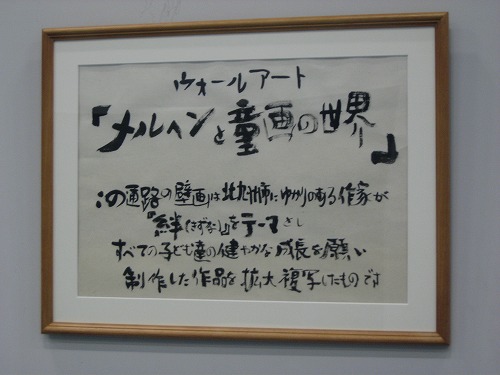 ウォールアート
「メルヘンと童画の世界」
この通路の壁画は北九州市にゆかりのある作家が
『絆(きずな)』をテーマとし
すべての子ども達の健やかな成長を願い
制作した作品を拡大複写したものです